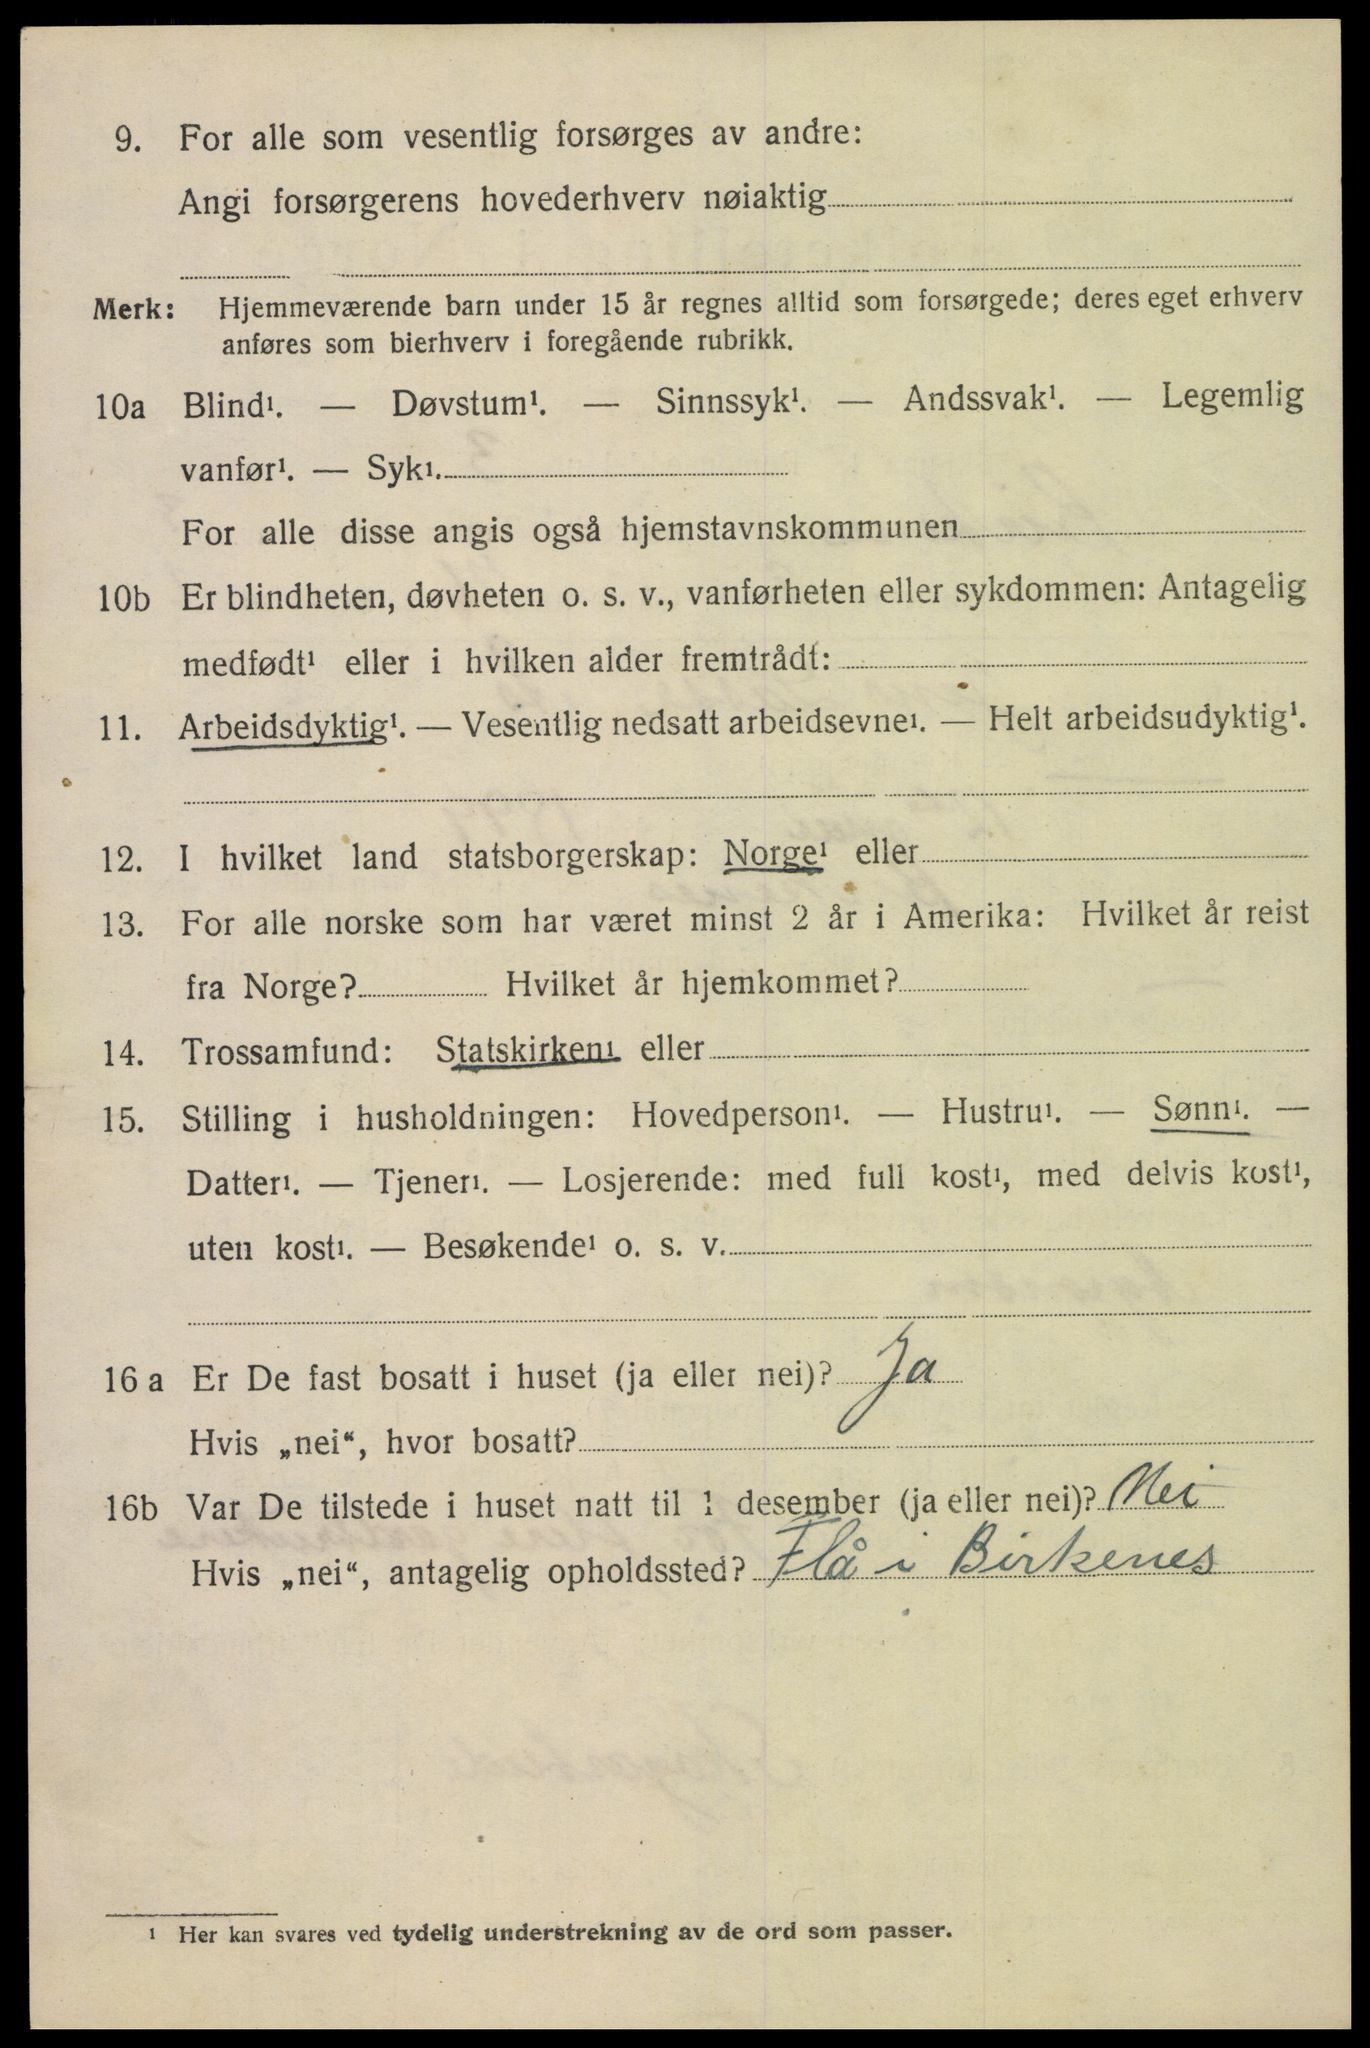 9. For alle som vesentlig forsørges av andre:
Angi forsørgerens hovederhverv nøiaktig
Merk: Hjemmeværende barn under 15 år regnes alltid som forsørgede; deres eget erhverv
anføres som bierhverv i foregående rubrikk.
10a Blind¹. — Døvstum¹. — Sinnssyk¹. — Andssvak¹. — Legemlig
vanfør¹. — Syk¹.
For alle disse angis også hjemstavnskommunen
10b Er blindheten, døvheten o. s. v., vanførheten eller sykdommen: Antagelig
medfødt¹ eller i hvilken alder fremtrådt:
11. Arbeidsdyktig¹. — Vesentlig nedsatt arbeidsevne¹. — Helt arbeidsudyktig¹.
12. I hvilket land statsborgerskap: Norge¹ eller
13. For alle norske som har været minst 2 år i Amerika: Hvilket år reist
fra Norge? Hvilket år hjemkommet?
14. Trossamfund: Statskirken¹ eller
15. Stilling i husholdningen: Hovedperson¹. — Hustru¹. — Sønn¹. —
Datter¹. — Tjener¹. — Losjerende: med full kost¹, med delvis kost¹,
uten kost¹. — Besøkende¹ o. s. v.
16a Er De fast bosatt i huset (ja eller nei)? Ja
Hvis „nei“, hvor bosatt?
16b Var De tilstede i huset natt til 1 desember (ja eller nei)? Nei
Hvis „nei“, antagelig opholdssted? Flå i Birkenes
¹ Her kan svares ved tydelig understrekning av de ord som passer.